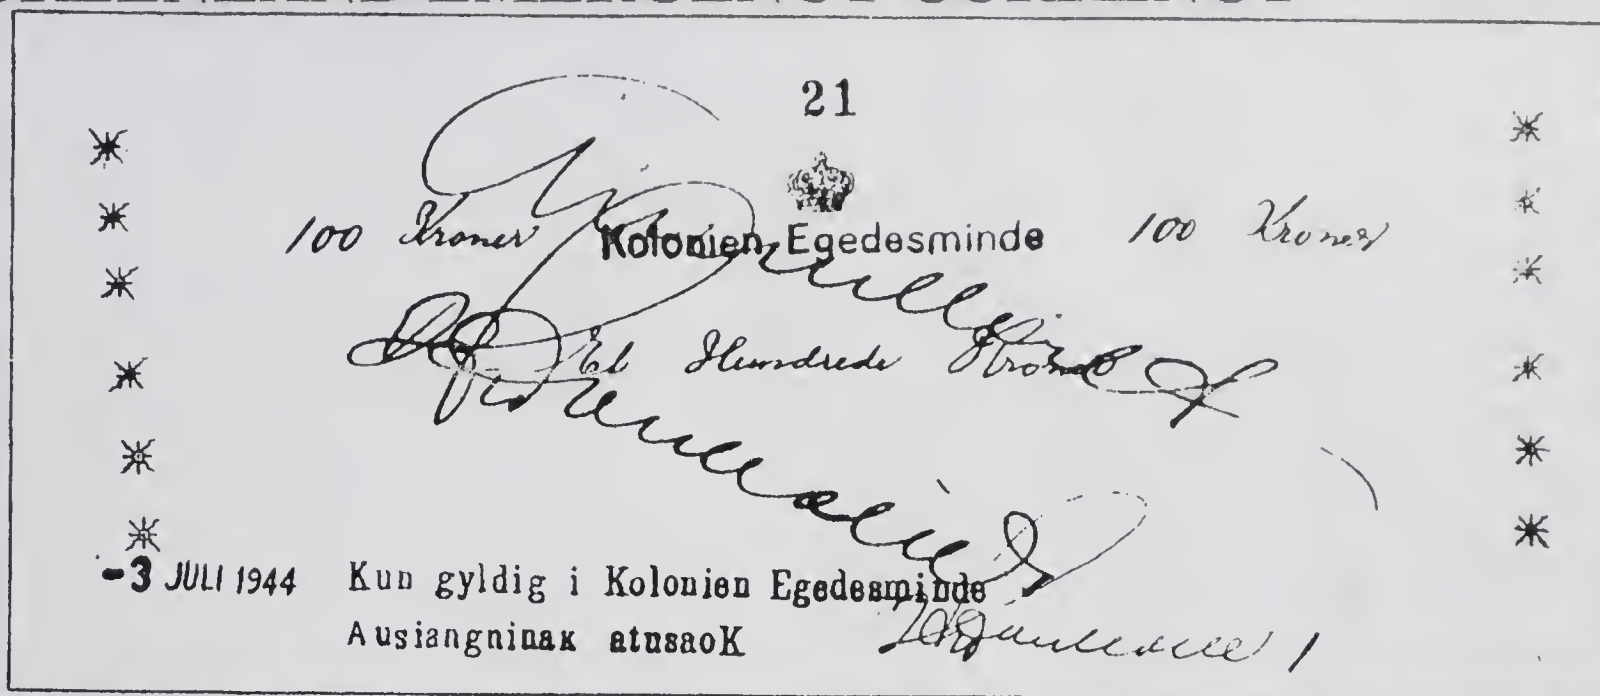 GREENLAND EMERGENCY CURRENCY
21
100 Kroner Kolonien Egedesminde 100 Kroner
Et Hundrede Kroner
-3 JULI 1944 Kun gyldig i Kolonien Egedesminde
Ausiangninaĸ atusaoK